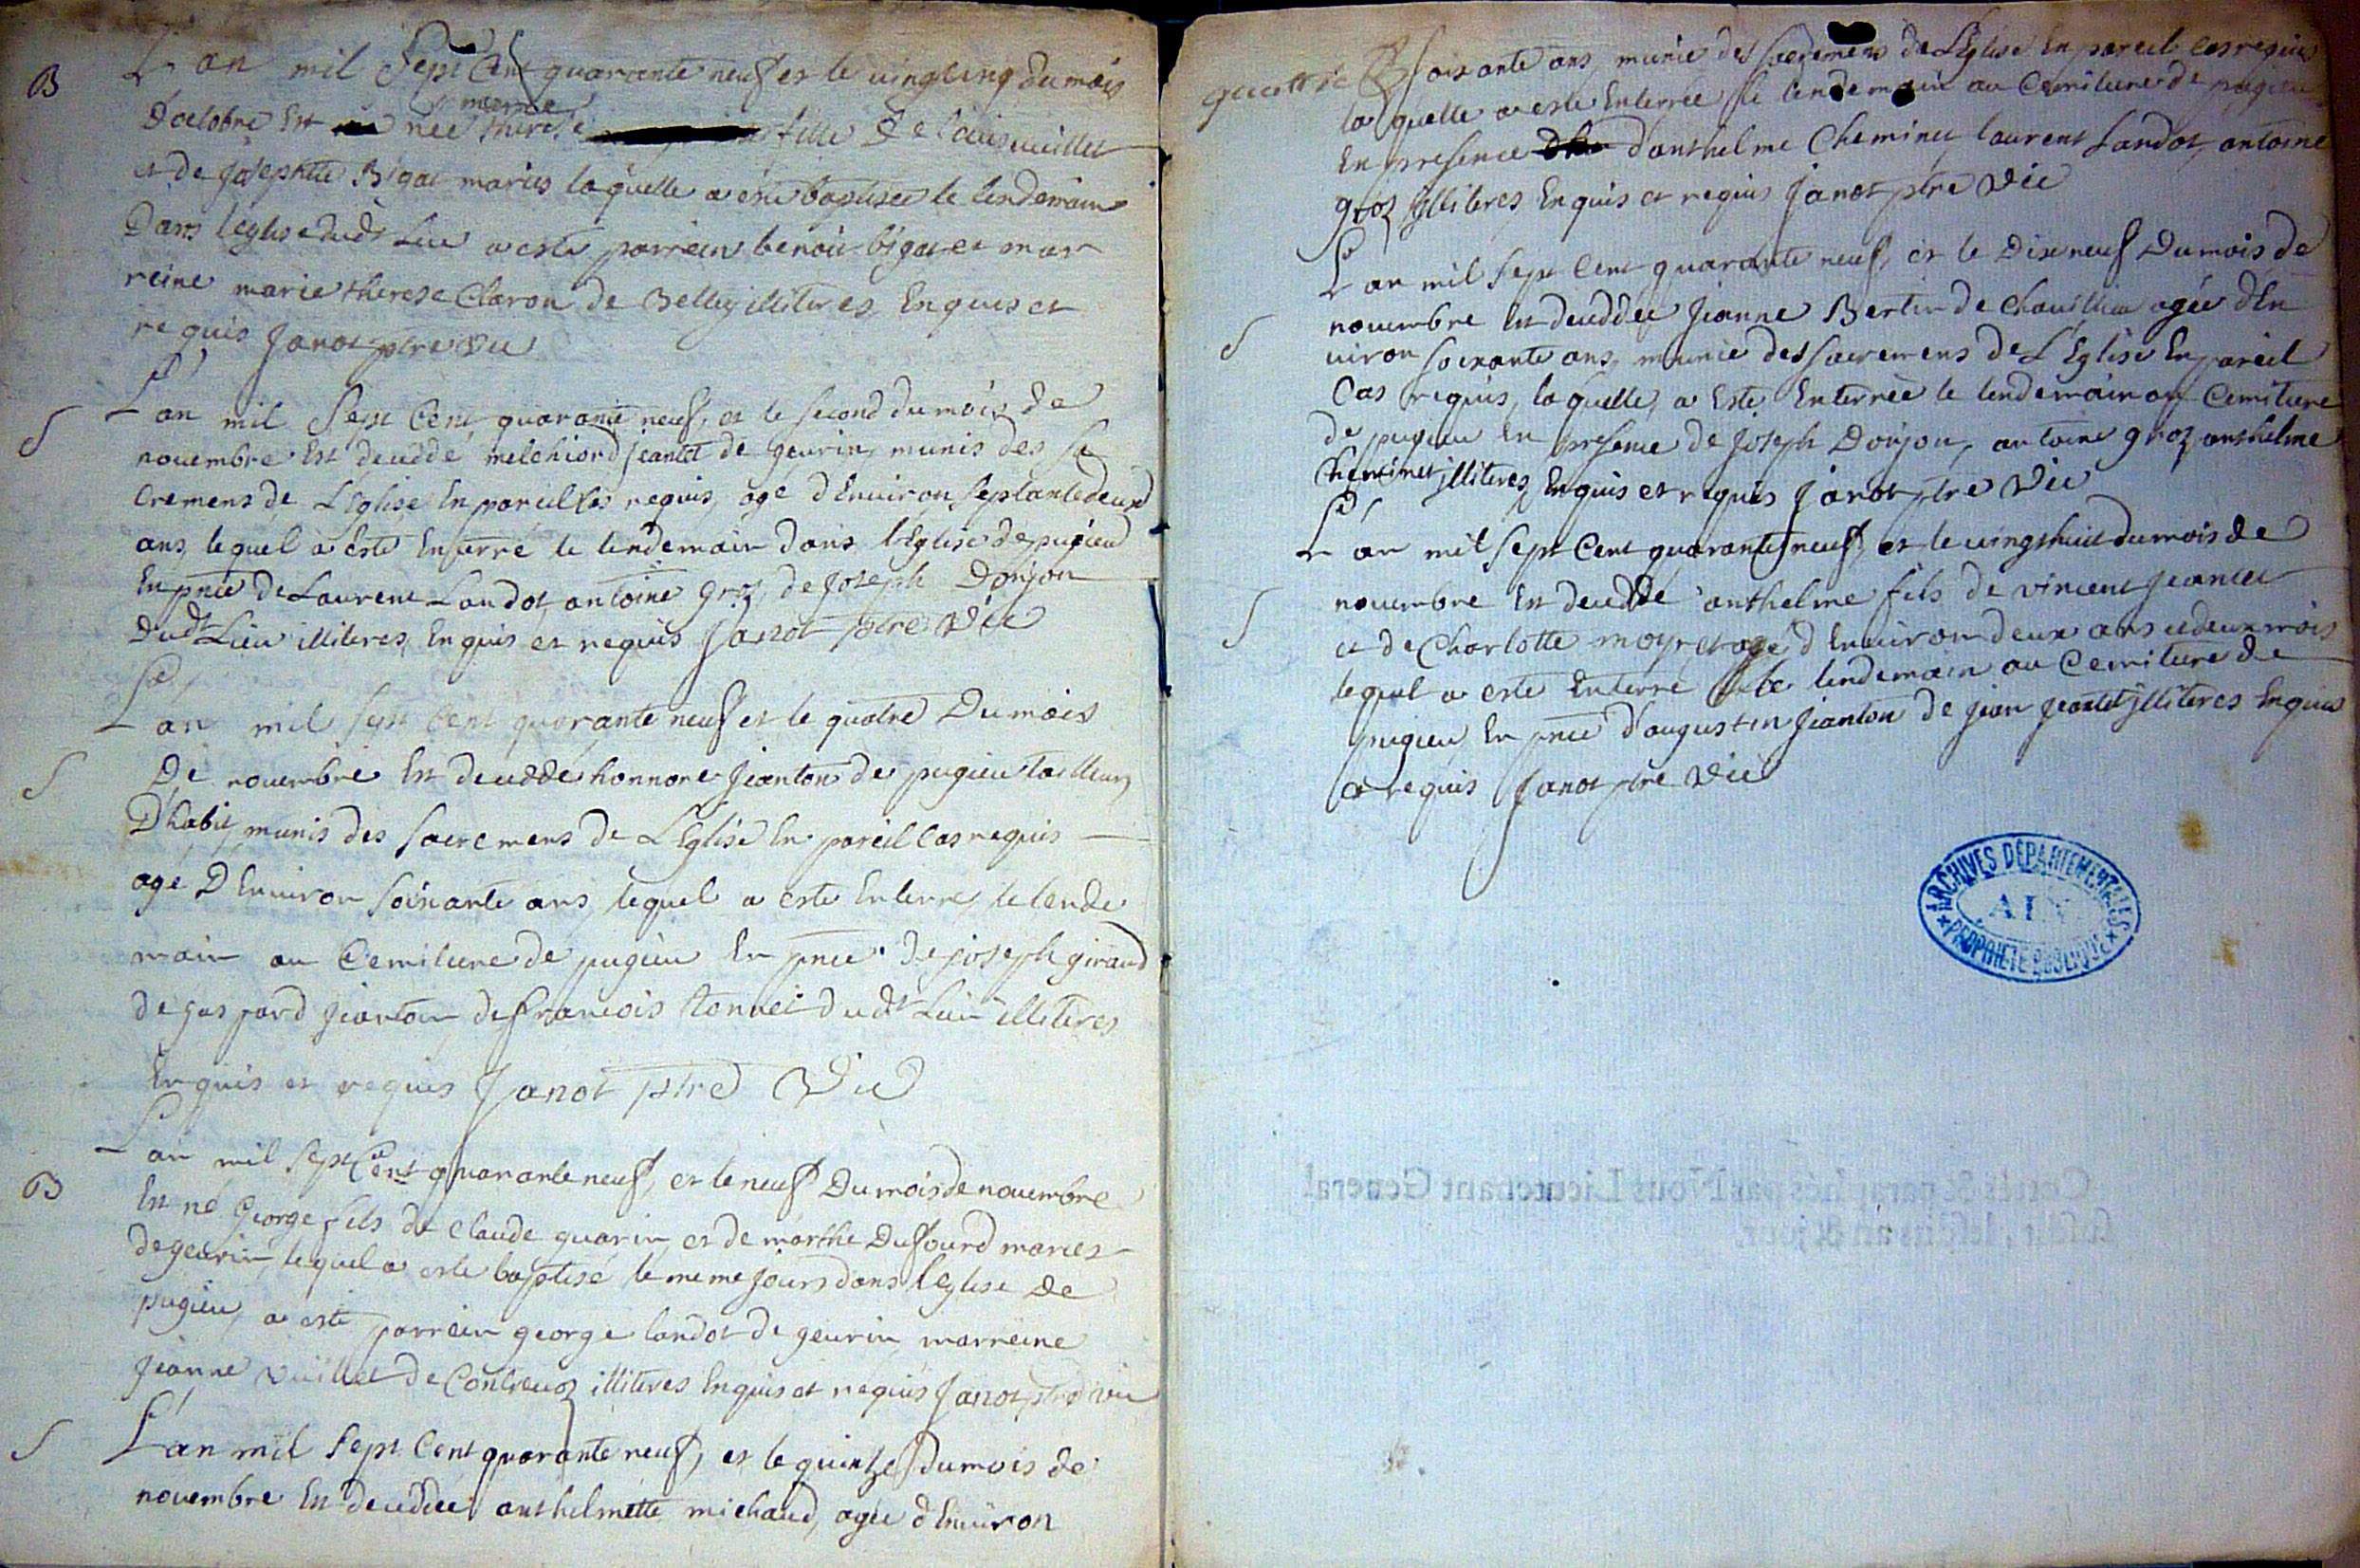 B
L'an mil Sept Cent quarante neuf et le vingtcinq du mois
D'octobre Est née marie therese fille De Louis vuillet
et de josephte Bigot mariés laquelle a esté baptisée le lendemain
Dans l'eglise dudt Lieu a esté parrein benoit bigot et mar
reine marie therese Claron de Belley illiteres Enquis et
requis Janot ptre vic
S
L'an mil Sept Cent quarante neuf, et le second du mois de
novembre Est deceddé melchiord jeantet de gevrin munis des Sa
cremens de L'Eglise En pareil Cas requis, agé d'Environ Septante deux
ans, lequel a esté Enterré le lendemain dans l'Eglise de pugieu
En pnce De Laurent Landot, antoine groz, de joseph Donjon
Dudt Lieu illiteres, Enquis et requis Janot ptre Vic
S
L'an mil Sept Cent quarante neuf et le quatre Du mois
De novembre Est deceddé honnoré jeanton de pugieu tailleur
D'habit, munis des Sacremens de L'Eglise En pareil Cas requis
agé D'Environ Soixante ans, lequel a esté Enterré, le lende
main au Cemitiere de pugieu En pnce de joseph giraud
de gaspard jeanton de francois tonnet dudt Lieu illiteres
Enquis et requis Janot ptre Vic
B
L'an mil Sept Cent quarante neuf, et le neuf Du mois de novembre
Est né George fils de Claude guarin, et de marthe Dufourd mariés
de gevrin, lequel a esté baptisé le meme jour dans l'Eglise De
pugieu, a esté parrein george landot de gevrin, marreine
jeanne Vuillet de Contrevoz illiteres Enquis et requis Janot ptre vic
S
L'an mil Sept Cent quarante neuf, et le quinze du mois de
novembre Est deceddée anthelmette michaud, agée d'Environ
Soixante ans, munie des Sacremens de L'Eglise En pareil Cas requis
laquelle a esté Enterrée le lendemain au Cemitiere de pugieu
En presence d'anthelme Cheminet laurent Landot, antoine
groz illiteres Enquis et requis Janot ptre Vic
S
L'an mil Sept Cent quarante neuf, et le Dix neuf Du mois de
novembre Est deceddée Jeanne Bertin de Chavillieu agée d'En
viron Soixante ans, munie des Sacremens de L'Eglise En pareil
Cas requis, laquelle, a Esté Enterrée le lendemain au Cemitiere
de pugieu En presence de Joseph Donjon, antoine groz, anthelme
Cheminet illiteres, Enquis et requis Janot ptre Vic
S
L'an mil Sept Cent quarante neuf, et le vingthuit du mois de
novembre Est deceddé anthelme fils de vincent jeantet
et de Charlotte moyret agé d'Environ deux ans et deux mois
lequel a esté Enterré le lendemain au Cemitiere de
pugieu En pnce d'augustin jeanton de jean jeantet illiteres Enquis
et requis Janot ptre Vic
ARCHIVES DÉPARTEMENTALES
AIN
PROPRIÉTÉ PUBLIQUE